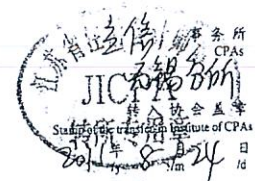 江苏省
立信 事务所
CPAs
JICPA
无锡分所
转入协会盖章
Stamp of the transfer-in Institute of CPAs
2011年 8月 24日
/y /m /d